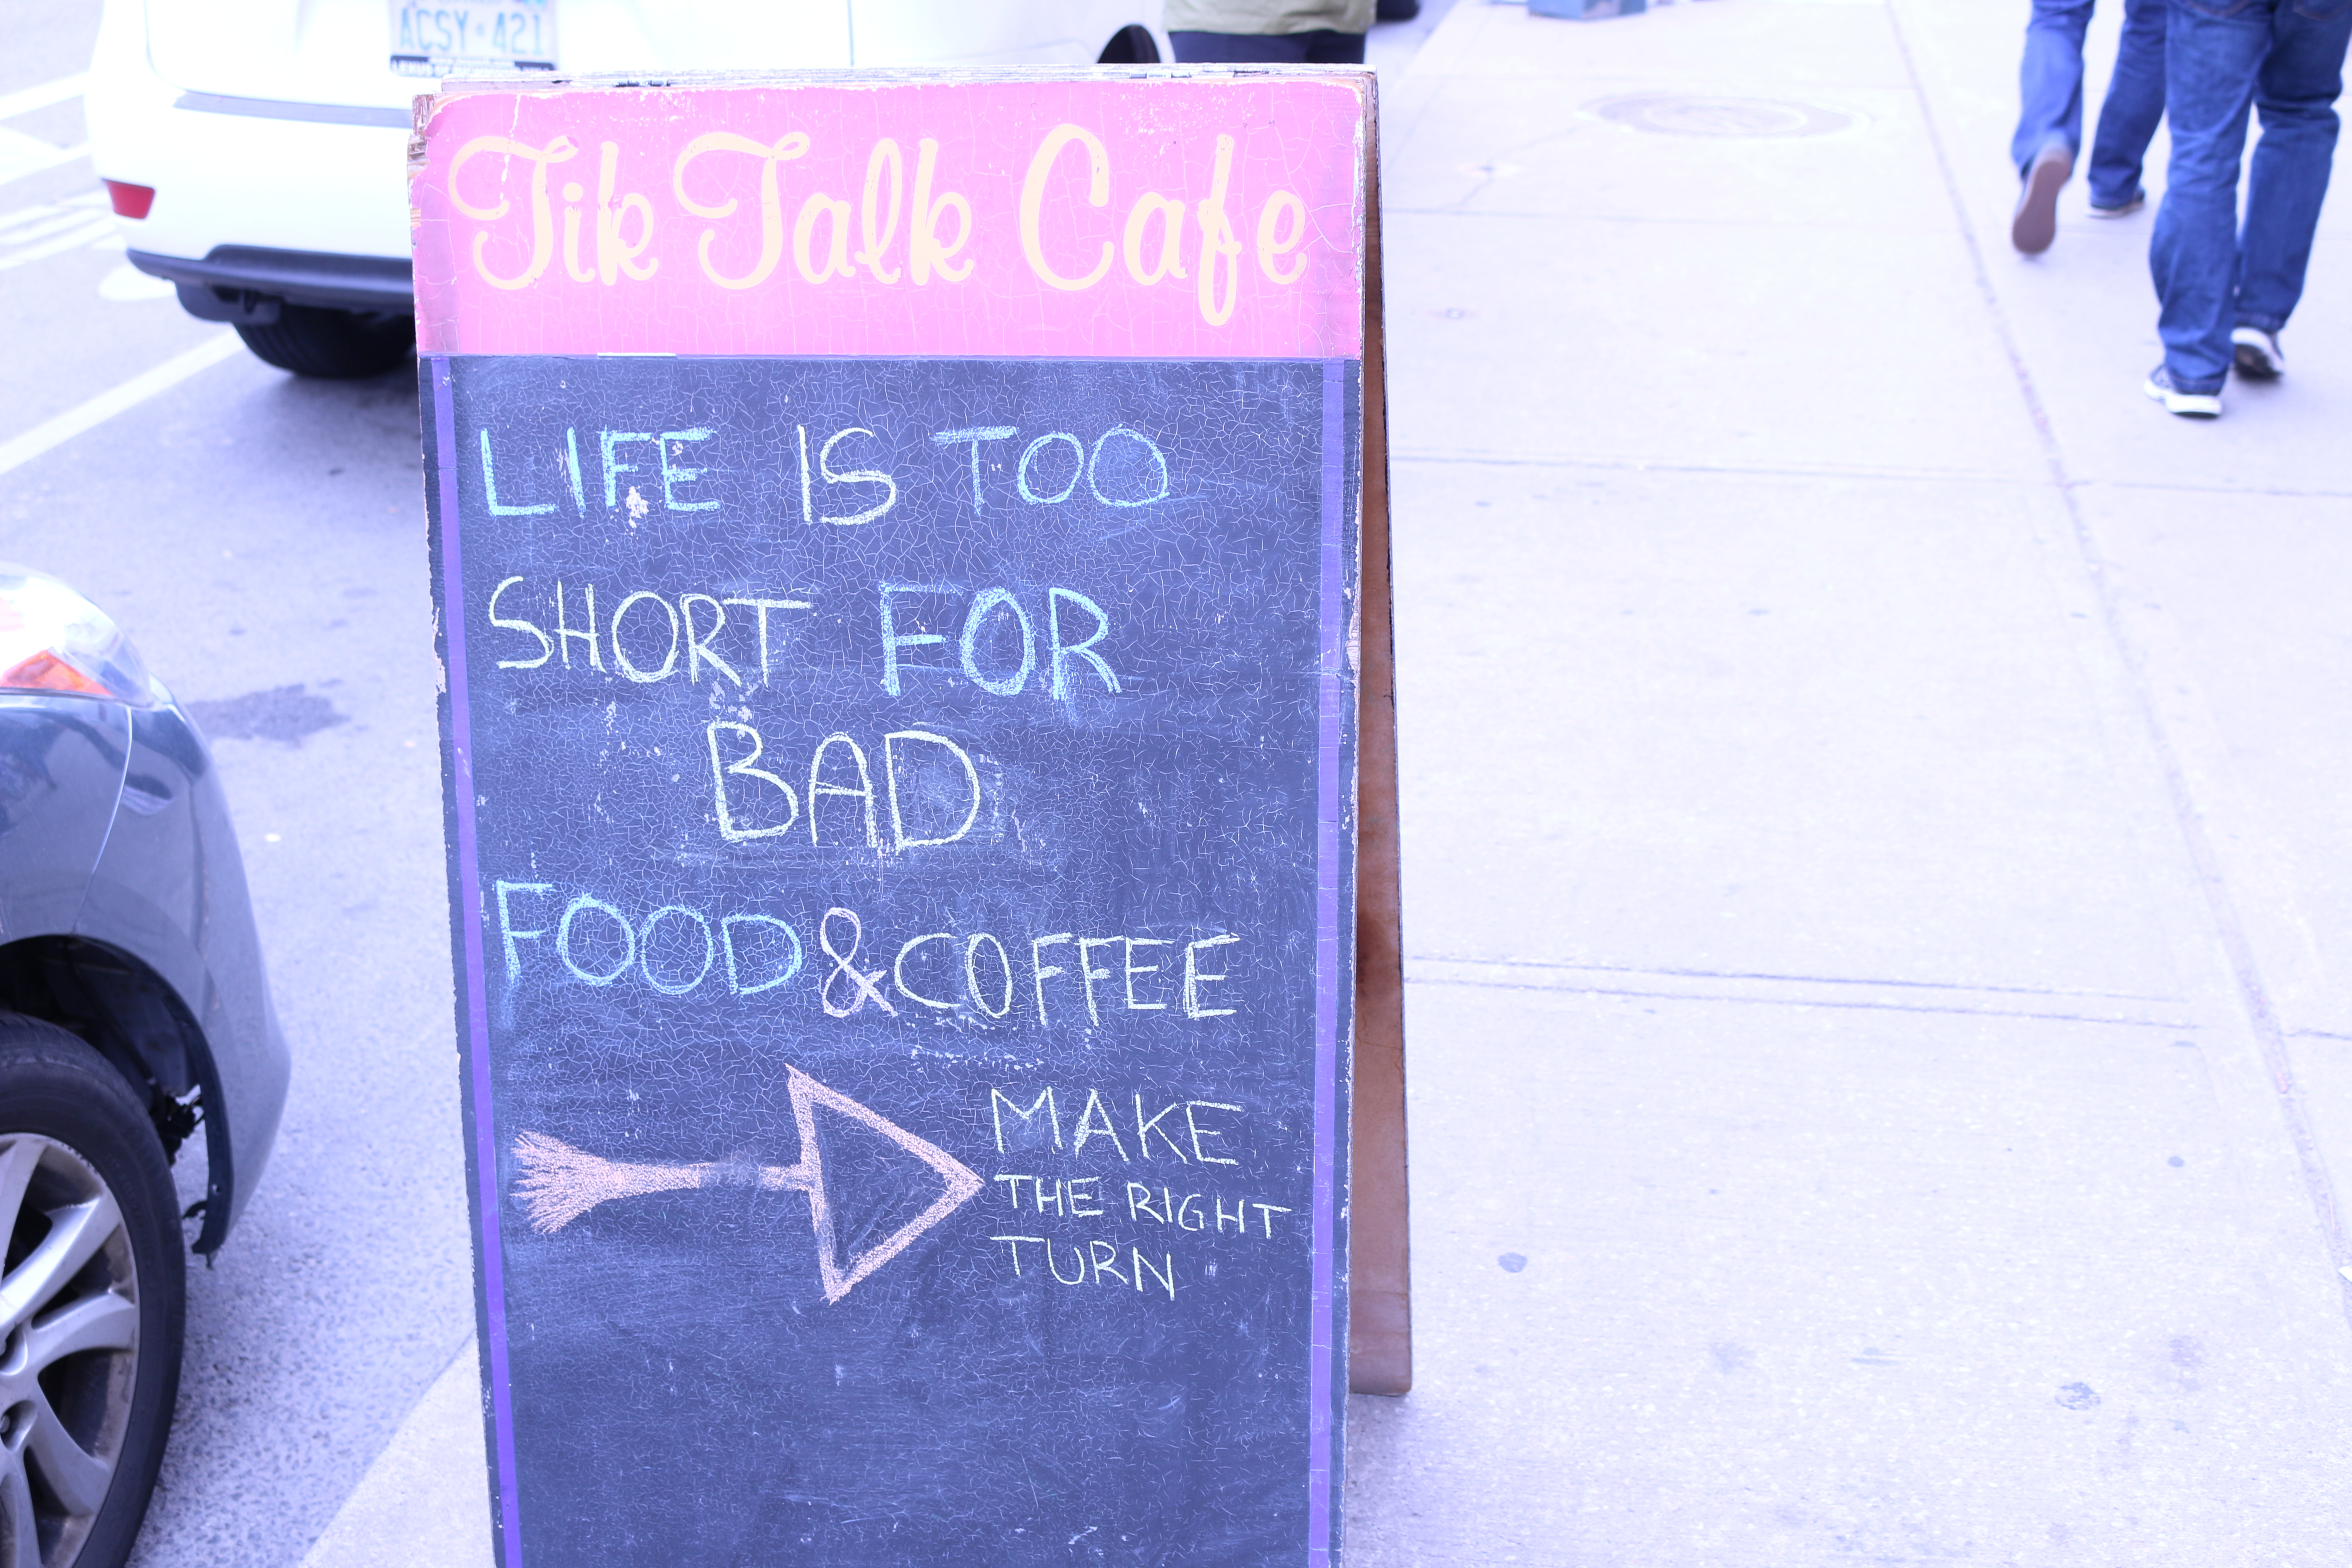 ACSY·421
Tik Talk Cafe
LIFE IS TOO
SHORT FOR
BAD
FOOD & COFFEE
MAKE
THE RIGHT
TURN